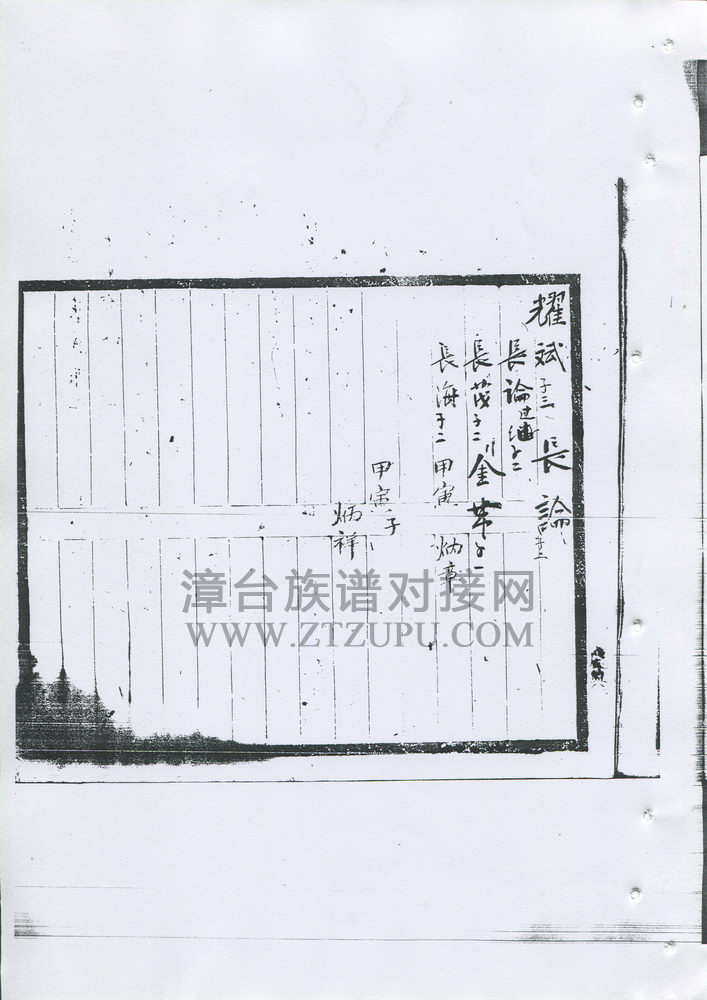 耀斌子三 長論子二
長論过继子二
長茂子二 金苹子一
長海子二 甲寅 炳章
甲寅子
炳祥
漳台族谱对接网
WWW.ZTZUPU.COM